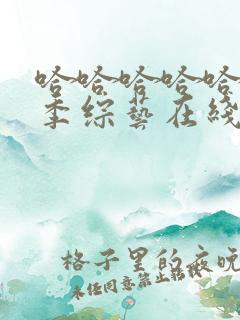 哈哈哈哈哈
季综艺在线
格子里的夜晚
未经同意禁止转载